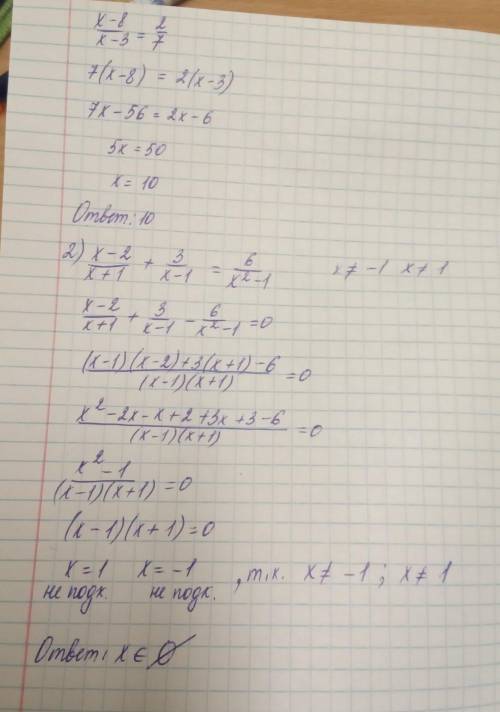 x-8/x-3 = 2/7
7(x-8) = 2(x-3)
7x-56 = 2x-6
5x = 50
x = 10
Ответ: 10
2) x-2/x+1 + 3/x-1 = 6/x²-1 x≠-1 x≠1
x-2/x+1 + 3/x-1 - 6/x²-1 = 0
(x-1)(x-2)+3(x+1)-6/(x-1)(x+1) = 0
x²-2x-x+2+3x+3-6/(x-1)(x+1) = 0
x²-1/(x-1)(x+1) = 0
(x-1)(x+1) = 0
x=1 x=-1 , т.к. x≠-1; x≠1
не подх. не подх.
Ответ: x ∈ ∅